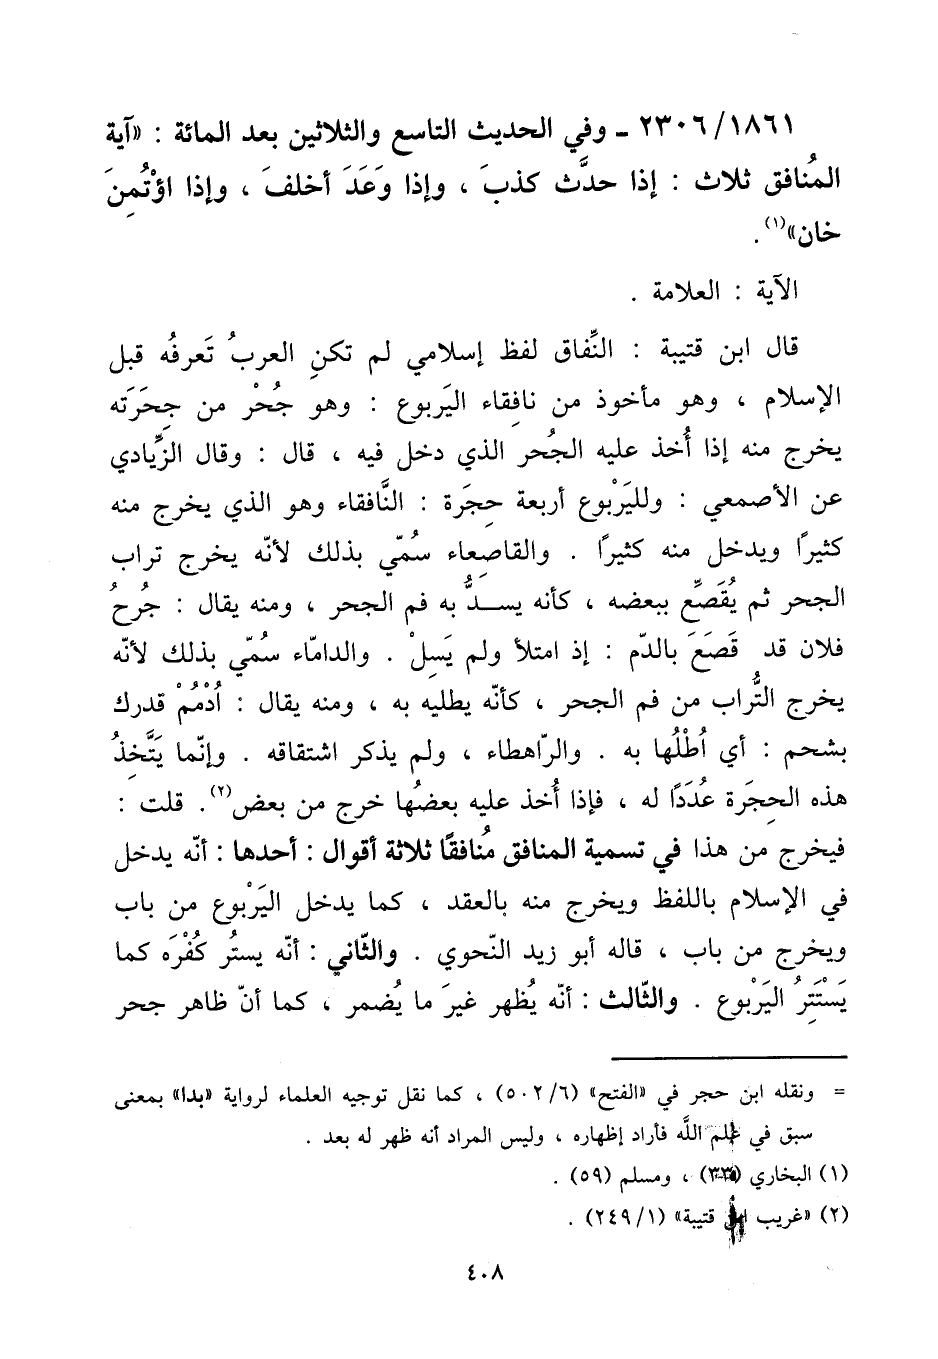 ٢٣٠٦/١٨٦١ ـ وفي الحديث التاسع والثلاثين بعد المائة : «آية
المُنافق ثلاث : إذا حدَّث كذبَ ، وإذا وَعَدَ أخلفَ ، وإذا اؤْتُمِنَ
خان»(١) .
الآية : العلامة .
قال ابن قتيبة : النِّفاق لفظ إسلامي لم تكنِ العربُ تَعرفُه قبل
الإسلام ، وهو مأخوذ من نافِقاء اليَربوع : وهو جُحْر من جِحَرَته
يخرج منه إذا أُخذ عليه الجُحر الذي دخل فيه ، قال : وقال الزِّيادي
عن الأصمعي : ولليَرْبوع أربعة حِجَرة : النَّافقاء وهو الذي يخرج منه
كثيرًا ويدخل منه كثيرًا . والقاصِعاء سُمّي بذلك لأنّه يخرج تراب
الجحر ثم يُقَصِّع ببعضه ، كأنه يســدُّ به فم الجحر ، ومنه يقال : جُرحُ
فلان قد قَصَعَ بالدّم : إذ امتلأ ولم يَسِلْ . والدامّاء سُمّي بذلك لأنّه
يخرج التُّراب من فم الجحر ، كأنّه يطليه به ، ومنه يقال : اُدْمُمْ قدرك
بشحم : أي اُطْلُها به . والرّاهطاء ، ولم يذكر اشتقاقه . وإنّما يَتَّخِذُ
هذه الحِجَرة عُدَدًا له ، فإذا أُخذ عليه بعضُها خرج من بعض(٢) . قلت :
فيخرج من هذا في تسمية المنافق مُنافقًا ثلاثة أقوال : أحدها : أنّه يدخل
في الإسلام باللفظ ويخرج منه بالعقد ، كما يدخل اليَرْبوع من باب
ويخرج من باب ، قاله أبو زيد النّحوي . والثّاني : أنّه يستُر كُفْرَه كما
يَسْتَتِرُ اليَرْبوع . والثّالث : أنّه يُظهر غيرَ ما يُضمر ، كما أنّ ظاهر جحر
= ونقله ابن حجر في «الفتح» (٥٠٢/٦) ، كما نقل توجيه العلماء لرواية «بدا» بمعنى
سبق في علم اللَّه فأراد إظهاره ، وليس المراد أنه ظهر له بعد .
(١) البخاري ، ومسلم (٥٩) .
(٢) «غريب ابن قتيبة» (٢٤٩/١) .
٤٠٨